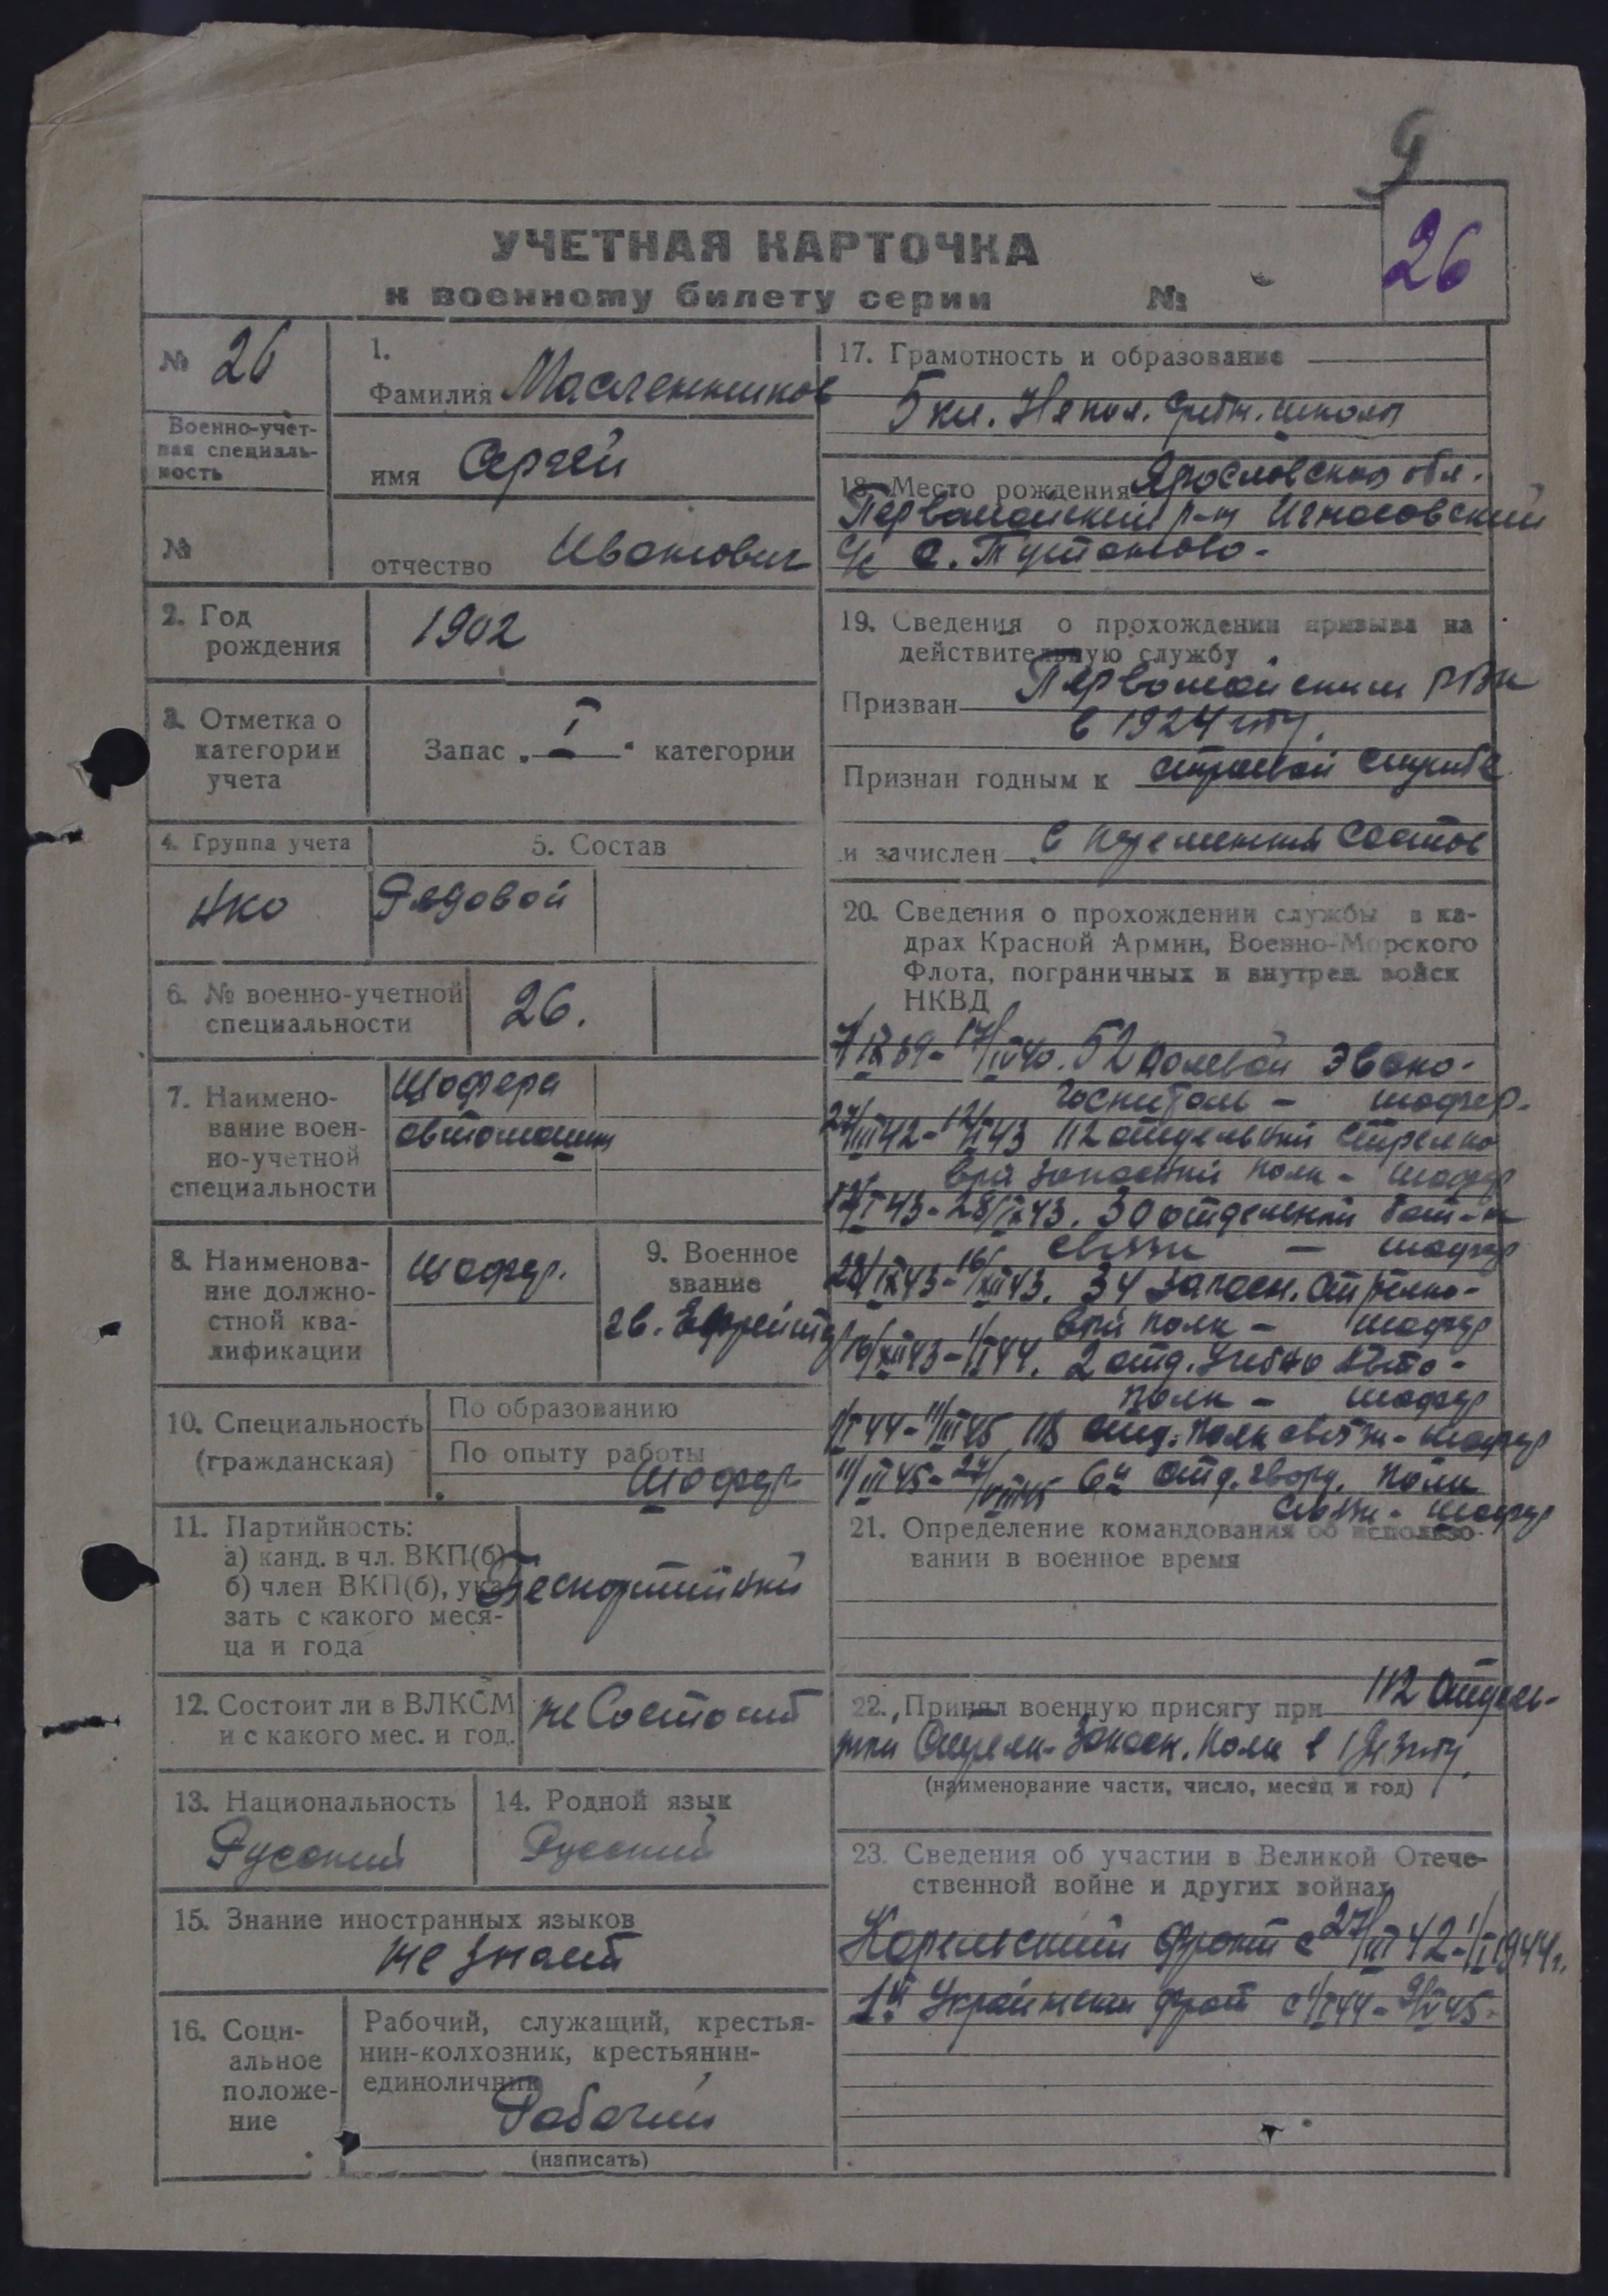 9
26
УЧЕТНАЯ КАРТОЧКА
к военному билету серии №
№ 26
Военно-учет-
ная специаль-
ность
№
1.
Фамилия Масленников
имя Сергей
отчество Иванович
2. Год
рождения
1902
3. Отметка о
категории
учета
Запас „ I " категории
4. Группа учета
НКО
5. Состав
Рядовой
6. № военно-учетной
специальности
26.
7. Наимено-
вание воен-
но-учетной
специальности
Шофера
автомашин
8. Наименова-
ние должно-
стной ква-
лификации
Шофер.
9. Военное
звание
гв. Ефрейтор
10. Специальность
(гражданская)
По образованию
По опыту работы
Шофер
11. Партийность:
а) канд. в чл. ВКП(б)
б) член ВКП(б), ука-
зать с какого меся-
ца и года
Беспартийный
12. Состоит ли в ВЛКСМ
и с какого мес. и год.
не Состоит
13. Национальность
Русский
14. Родной язык
Русский
15. Знание иностранных языков
не знает
16. Соци-
альное
положе-
ние
Рабочий, служащий, крестья-
нин-колхозник, крестьянин-
единоличник
Рабочий
(написать)
17. Грамотность и образование
5 кл. Непол. средн. школы
18. Место рождения Ярославская обл.
Первомайский р-н
с/с с.
19. Сведения о прохождении призыва на
действительную службу
Призван Первомайским РВК
в 1924 году.
Признан годным к строевой службе
и зачислен в переменный состав
20. Сведения о прохождении службы в ка-
драх Красной Армии, Военно-Морского
Флота, пограничных и внутрен. войск
НКВД
7/IX 39 - 17/IV 40. 52 полевой эвако-
госпиталь - шофер.
27/III 42 - 12/I 43 112 отдельный стрелко
вый запасный полк - шофер
12/I 43 - 28/IX 43. 30 отдельный бат-н
связи - шофер
28/IX 43 - 16/XII 43. 34 запасн. стрелко-
вый полк - шофер
16/XII 43 - 1/I 44. 2 отд. учебно Авто-
полк - шофер
1/I 44 - 11/III 45 отд. полк связи - шофер
11/III 45 - 24/VIII 45 6й отд. гвард. полк
связи - шофер
21. Определение командования об использо-
вании в военное время
22. Принял военную присягу при 112 Отдель-
ном Стрелк. Запасн. полк в году.
(наименование части, число, месяц и год)
23. Сведения об участии в Великой Отече-
ственной войне и других войнах
Карельский фронт с 27/III 42 - 1/I 1944 г.
1й Украинский фронт с 1/I 44 - 9/V 45.